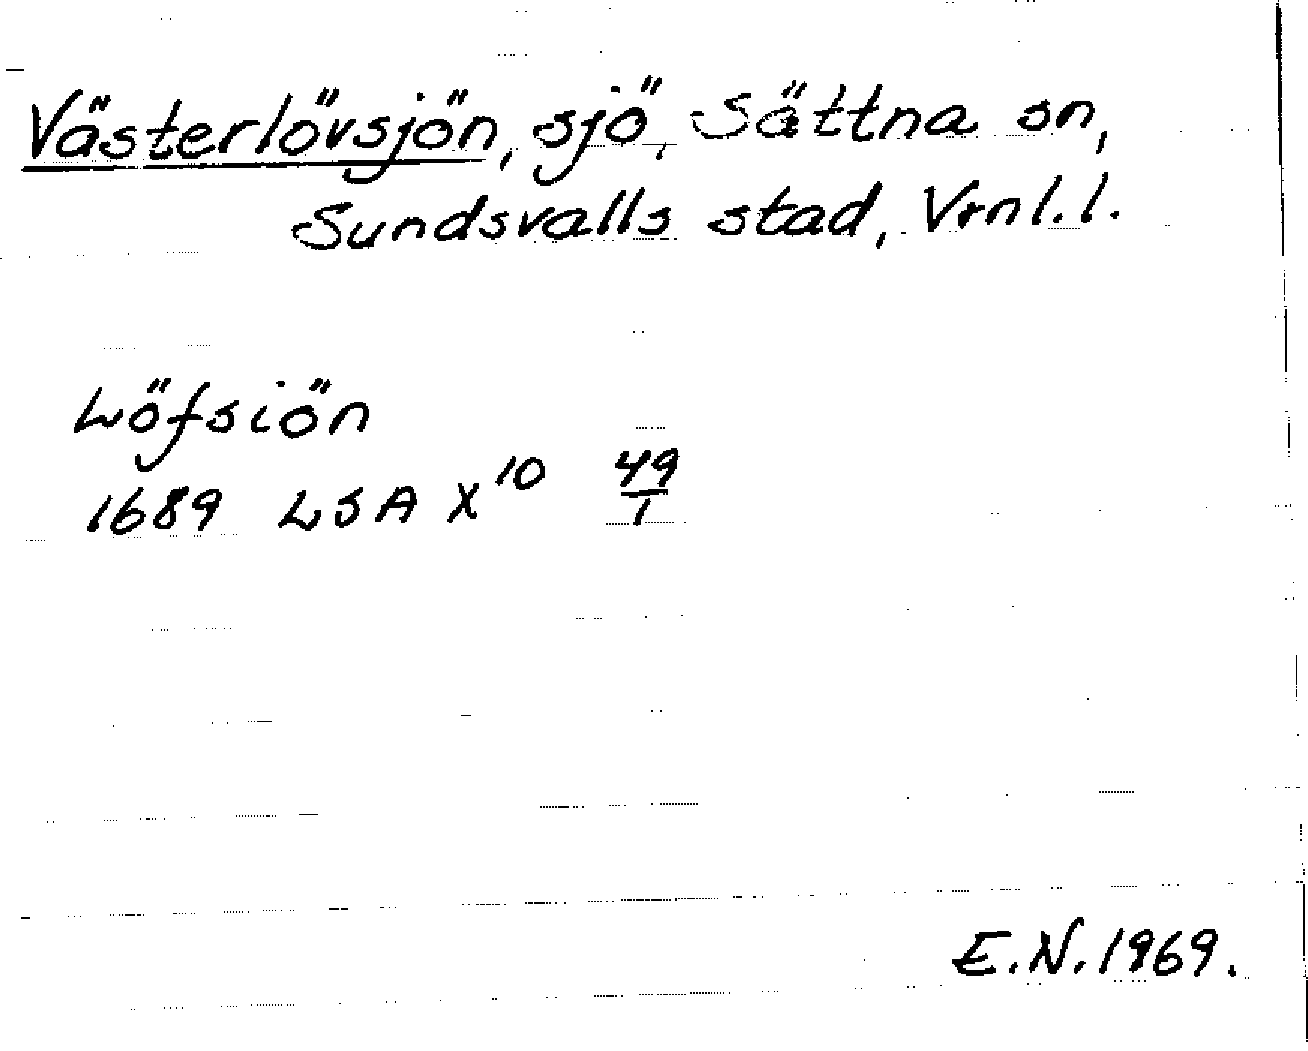 Västerlövsjön, sjö, Sättna sn,
Sundsvalls stad, Vrnl.l.
Löfsiön
1689 LSA X¹⁰ 49/1
E.N.1969.